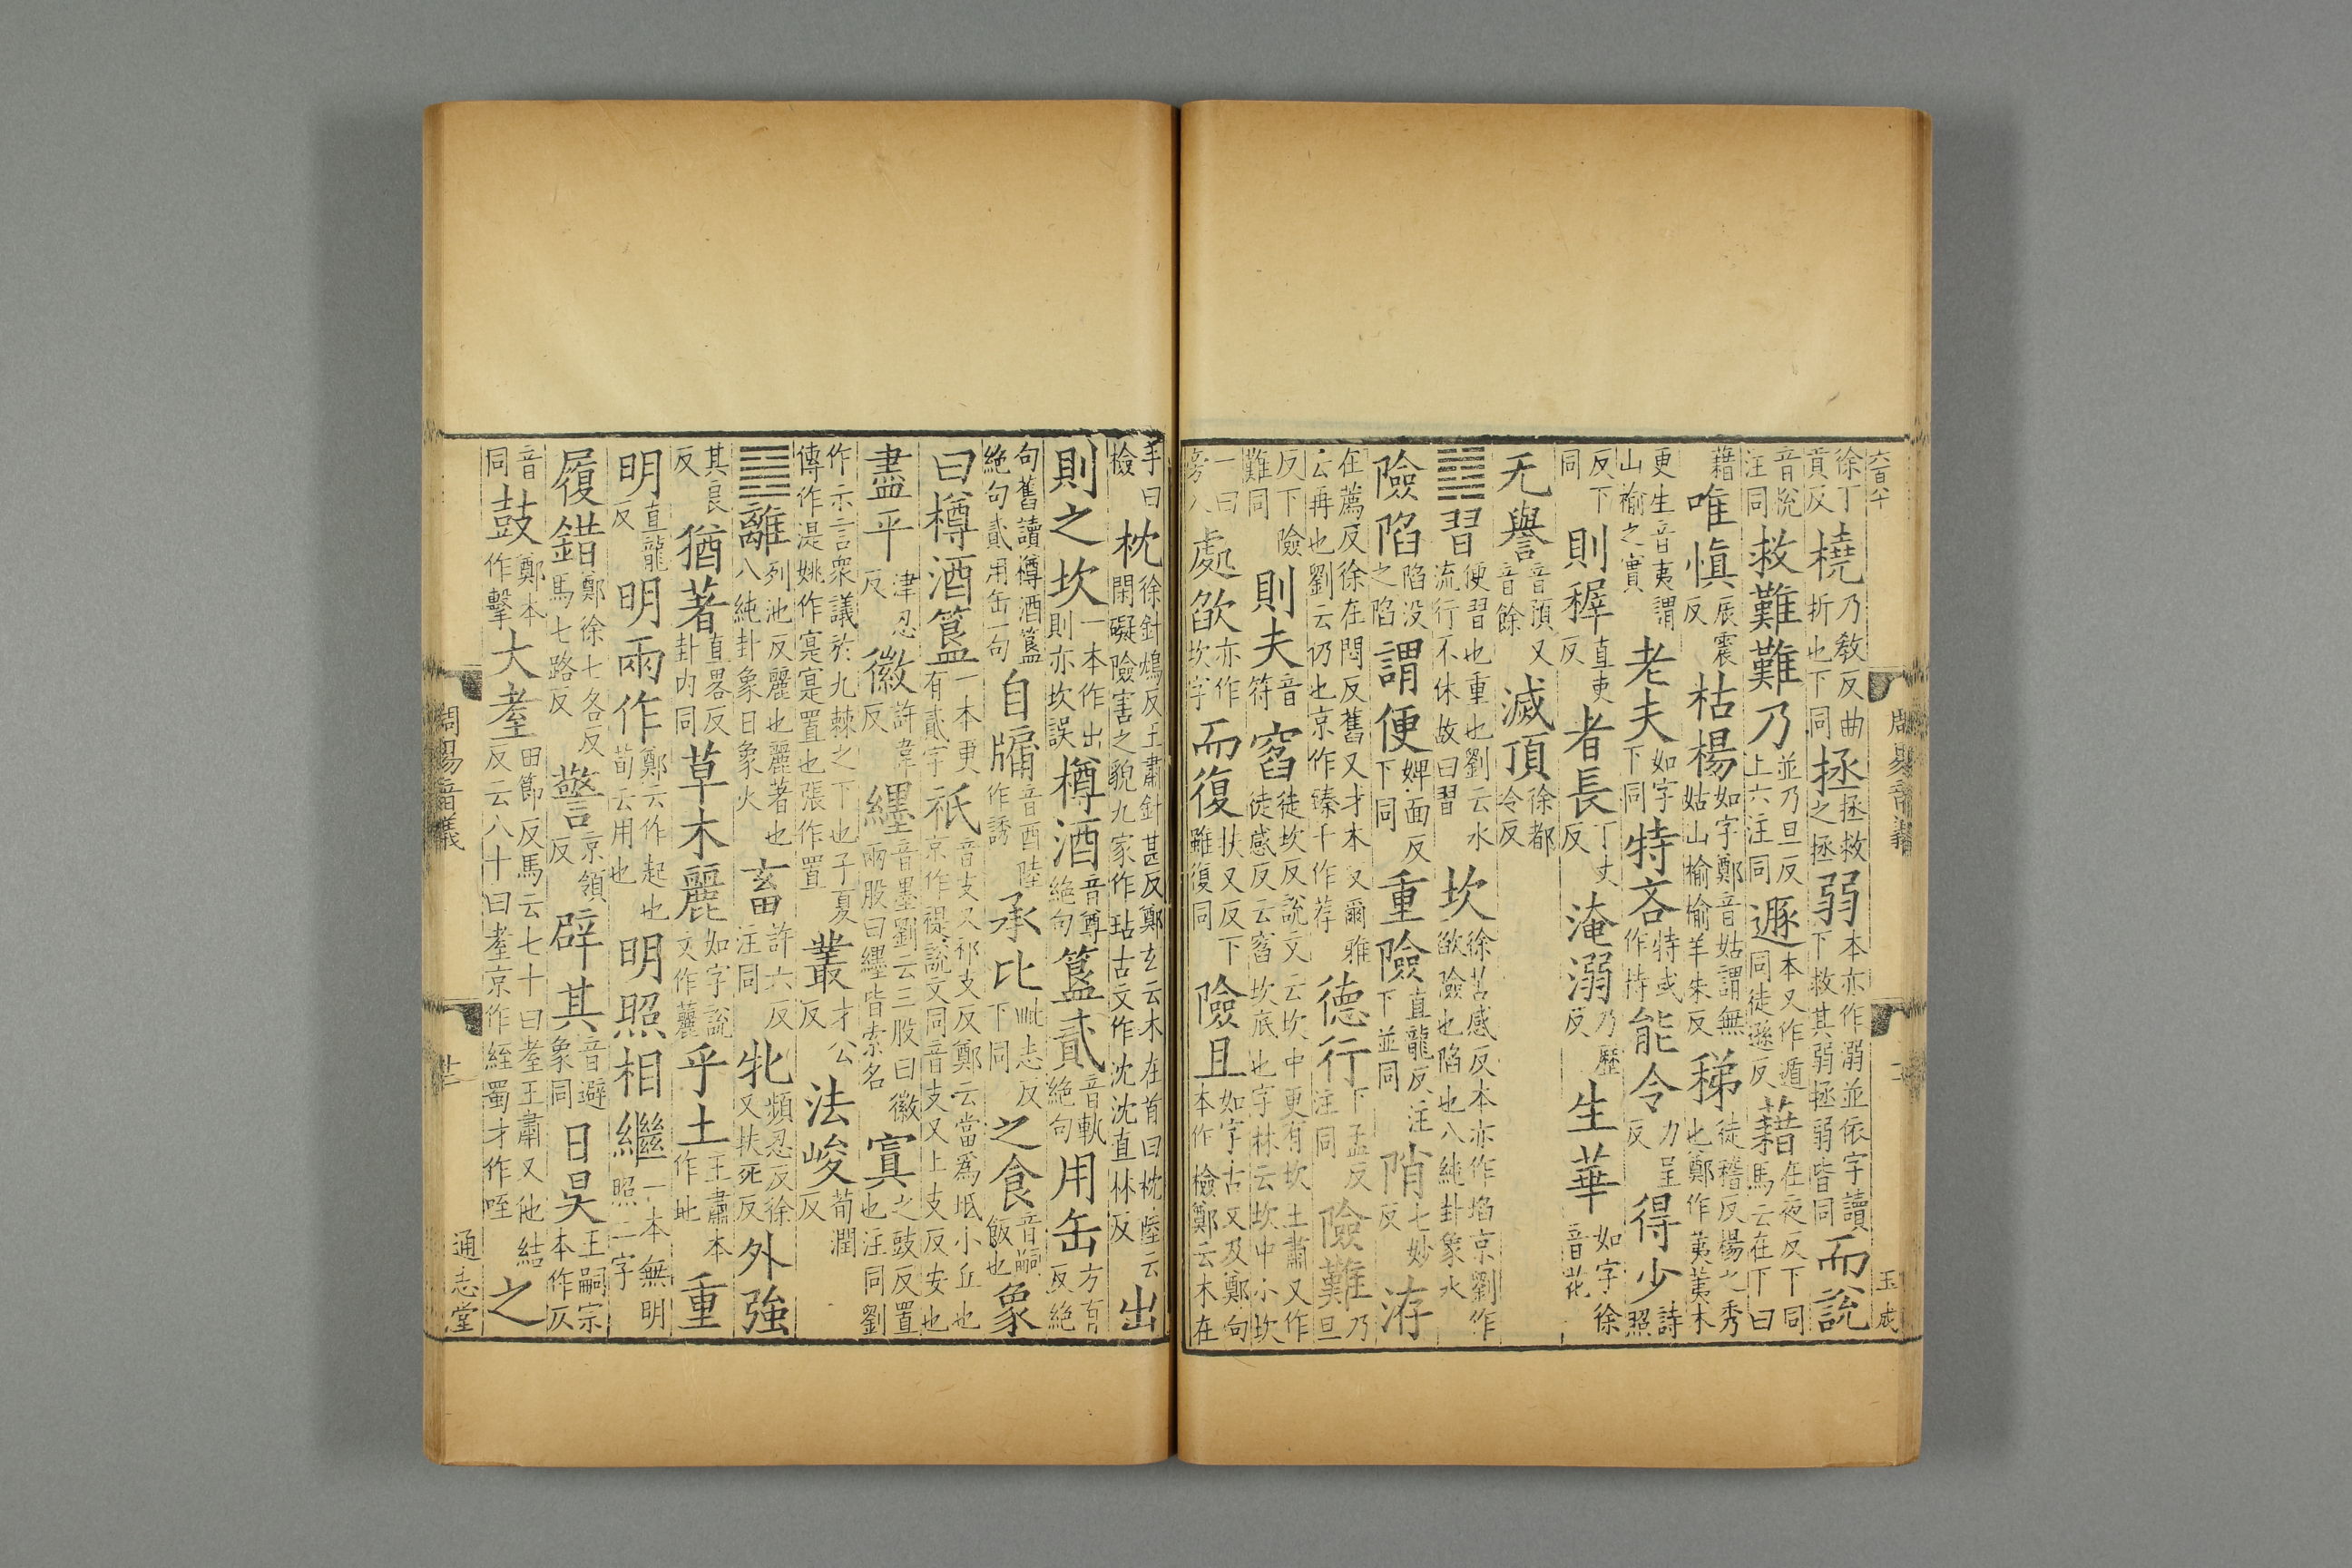 六百六十
徐丁貢反橈乃敎反曲折也下同拯拯救之拯弱本亦作溺並依字讀下救其弱拯弱皆同而說
音悅注同救難難乃並乃旦反上六注同遯本又作遁同徒遜反藉在夜反下同馬云在下曰
藉唯愼辰震反枯楊如字鄭音姑謂無姑山榆榆羊朱反稊徒稽反楊之秀也鄭作荑荑木
更生音夷謂山榆之實老夫如字下同特吝特或作持能令力呈反得少詩照
反下同則稺直吏反者長丁丈反淹溺乃歷反生華如字徐音花
无譽音預又音餘滅頂徐都冷反
䷜習便習也重也劉云水流行不休故曰習坎徐苦感反本亦作埳京劉作欿險也陷也八純卦象水
險陷陷没之陷謂便婢面反下同重險直龍反注下並同陗七妙反洊
在薦反徐在悶反舊又才本又爾雅云再也劉云仍也京作臻干作荐德行下孟反注同險難乃旦
反下險難同則夫音符窞徒坎反說文云坎中更有坎王肅又作徒感反云窞坎底也字林云坎中小坎
一曰旁入處欿亦作坎字而復扶又反下雖復同險且如字古文及鄭向本作檢鄭云木在
手曰檢枕徐針鴆反王肅針甚反鄭玄云木在首曰枕陸云閑礙險害之貌九家作玷古文作沈沈直林反出
則之坎一本作出則亦坎誤樽酒音尊絶句簋貳音軌絶句用缶方有反絶
句舊讀樽酒簋絶句貳用缶一句自牖音酉陸作誘承比毗志反下同之食音嗣飯也象
曰樽酒簋一本更有貳字祇音支又祁支反鄭云當爲坻小丘也京作禔說文同音支又上支反安也
盡平津忍反徽許韋反纆音墨劉云三股曰徽兩股曰纆皆索名寘之豉反置也注同劉
作示言衆議於九棘之下也子夏傳作湜姚作寔寔置也張作置叢才公反法峻荀潤反
䷝離列池反麗也麗著也八純卦象日象火畜許六反注同牝頻忍反徐又扶死反外強
其良反猶著直畧反卦内同草木麗如字說文作䕻乎土王肅本作地重
明直龍反明兩作鄭云作起也荀云用也明照相繼一本無明照二字
履錯鄭徐七各反馬七路反警京領反辟其音避象同日昃王嗣宗本作仄
音同鼓鄭本作擊大耋田節反馬云七十曰耋王肅又他結反云八十曰耋京作絰蜀才作咥之
周易音義
二
玉成
周易音義
廿
通志堂